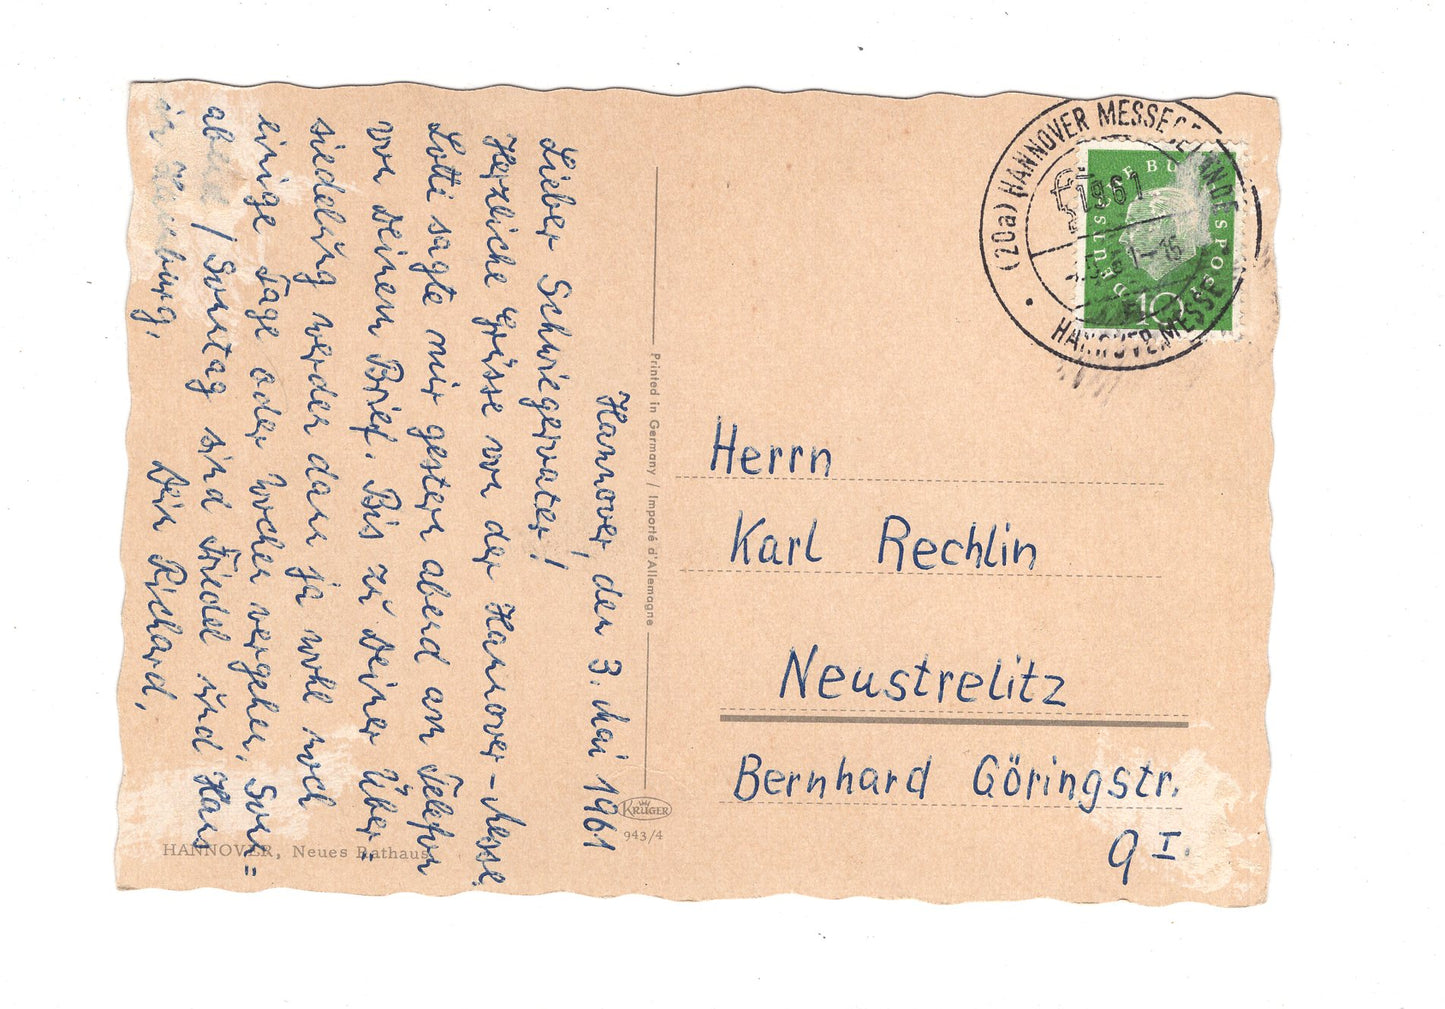 Hannover, den 3. Mai 1961
Lieber Schwiegervater!
Herzliche Grüsse von der Hannover-Messe.
Lotti sagte mir gestern abend am Telefon
von Deinem Brief. Bis zu Deiner Über=
siedelung werden dann ja wohl noch
einige Tage oder Wochen vergehen. Sonn=
abend / Sonntag sind Friedel und Hans
in
Dein Richard.
HANNOVER, Neues Rathaus
Printed in Germany / Importé d'Allemagne
KRÜGER
943/4
(20a) HANNOVER MESSEGELÄNDE
1961
HANNOVER MESSE
DEUTSCHE BUNDESPOST
10
Herrn
Karl Rechlin
Neustrelitz
Bernhard Göringstr.
9 I.